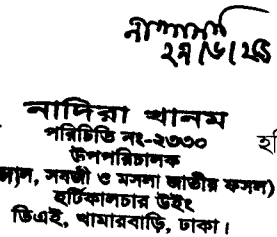 ২৭/৬/২১
নাদিরা খানম
পরিচিতি নং-২৩৩০
উপপরিচালক
সবজী ও মসলা জাতীয় ফসল)
হর্টিকালচার উইং
ডিএই, খামারবাড়ি, ঢাকা।